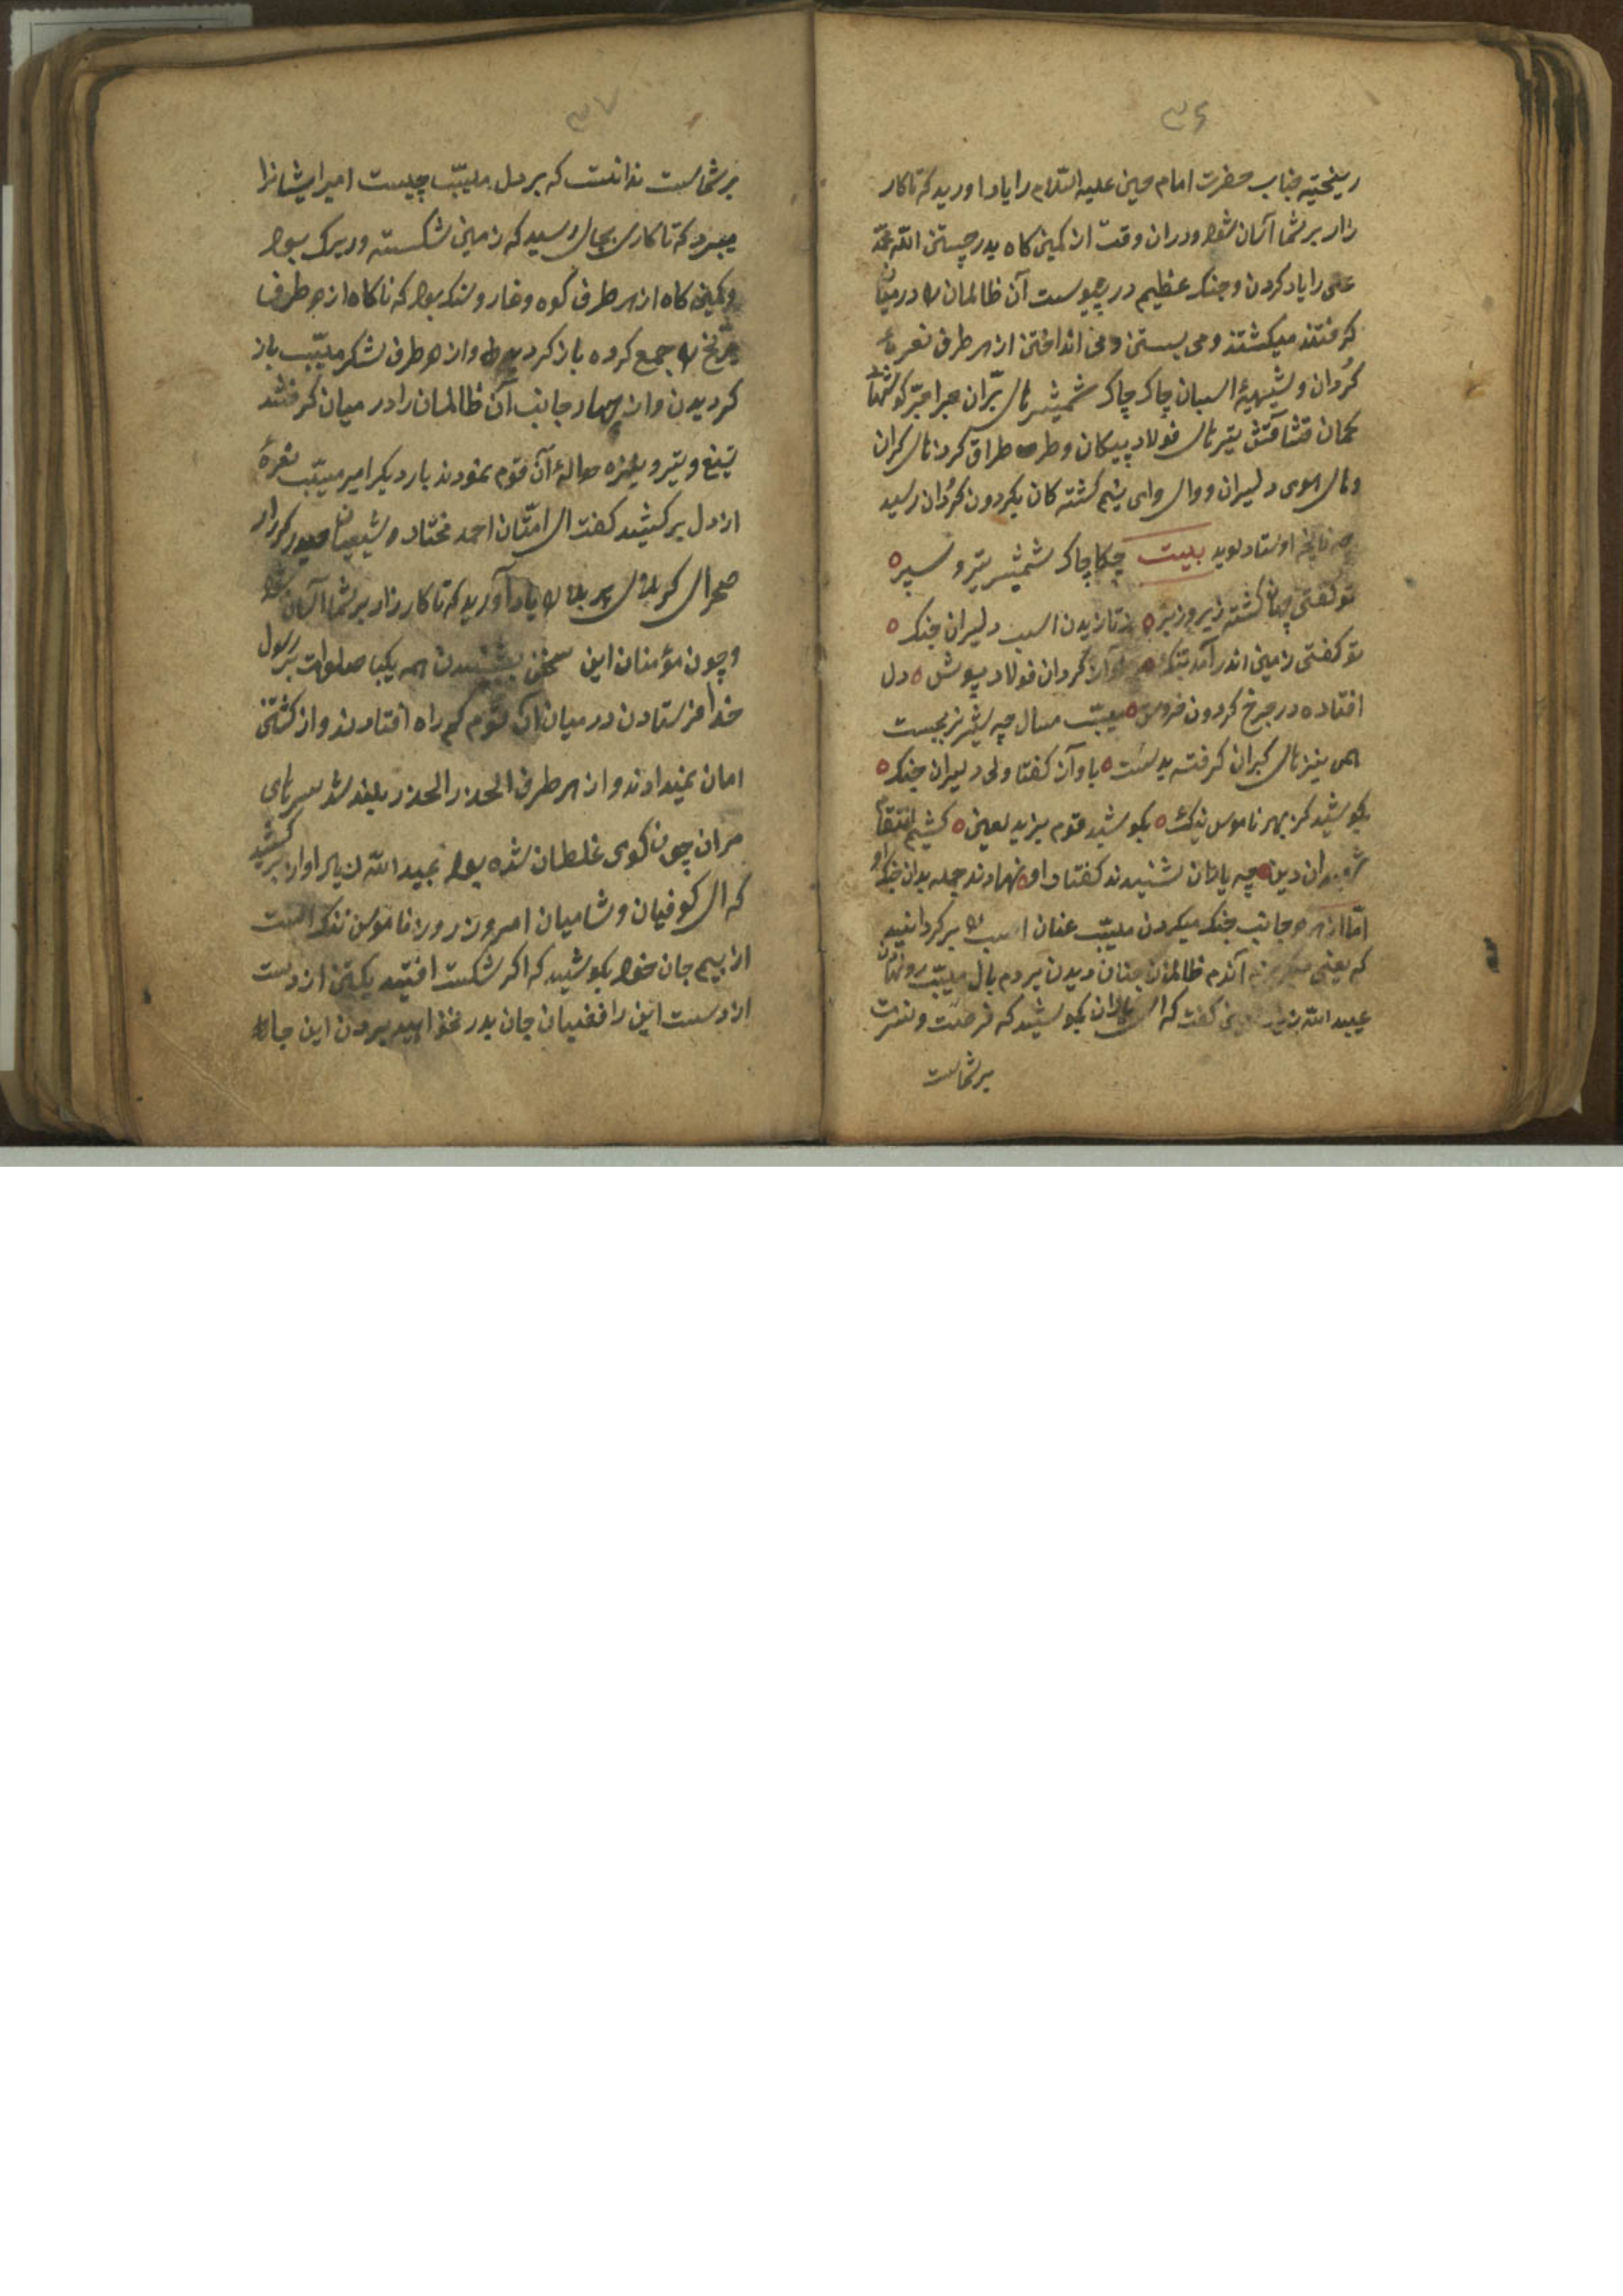 ۳۶
ریختیه جناب حضرت امام حسین علیه السّلام را یاد اورید که تا کار
زار بر شما آسان شود ودران وقت از کمین کاه بدر جستن الله محمّد
علی را یاد کردن و جنک عظیم در پیوست آن ظالمان را در میان
کرفتند میکشتند و می بستن و می انداختن از هر طرف نعرۀ
کُردان و شیهیۀ اسبان چاک چاک شمیشر های برّان جبراجبّر کوشهای
کمان فشافش تیر های فولاد پیکان و طرق طراق کرد های کران
و های هوی دلیران و وای وای نیم کشته کان بکردون کردان رسید
چنانچه اوستاد کوید بیت چکاچاک شمشیر تیر و سپر
تو کفتی جهان کشته زیر و زبر ز تازیدن اسب دلیران جنک
تو کفتی زمین اندر آمد بتنک کردان فولاد پوش دل
افتاده در چرخ کردون خروش مسیّب مسال چه شیر نر بجست
همی نیز های کران کرفته بدست باو آن کفتا ولی دلیران جنک
بکوشید کز بهر ناموس ننک بکوشید قوم یزید لعین کشیم انتقام
شهیدان دین چه یاران شنیدند کفتار او نهادند جمله بدان جنک او
امّا از هر دو جانب جنک میکردن مسیّب عنان اسب را بر کردانید
که یعنی آندم ظالمان چنان دیدن پر دم بال مسیّب رو نهادن
عبید الله زیاد کفت که ای یاران بکوشید که فرصت و نصرت
بر شماست
۳۷
بر شماست ندانست که بر دل مسیّب چیست امیر ایشانرا
میبرد که تا کار بجای رسید که زمین شکسته و ریک بود
و کمین کاه از هر طرف کوه و غار و سنک بود که ناکاه از هر طرف
جمع کرده باز کردید و از هر طرف لشکر مسیّب باز
کردیدن و از چهار جانب آن ظالمان را در میان کرفتند
تیغ و تیر و نیزه حوالۀ آن قوم نمودند بار دیکر امیر مسیّب نعرۀ
از دل بر کشید کفت ای امتّان احمد مختار و شیعیان حیدر کرّار
صحرای کربلای پر بلا را یاد آورید که تا کار زار بر شما آسان شود
و چون مؤمنان این سخن بشنیدن همه یکبا صلوات بر رسول
خدا فرستادن در میان آن قوم کم راه افتادند و از کشتن
امان نمیدادند و از هر طرف الحذر الحذر بلند شد سر های
مران چون کوی غلطان شده بود عبید الله زیاد اواز بر کشید
که ای کوفیان و شامیان امروز روز ناموس ننک است
از بیم جان خود بکوشید که اکر شکست افتید یکتن از دست
از دست این رافضیان جان بدر نخواهید بردن این جا